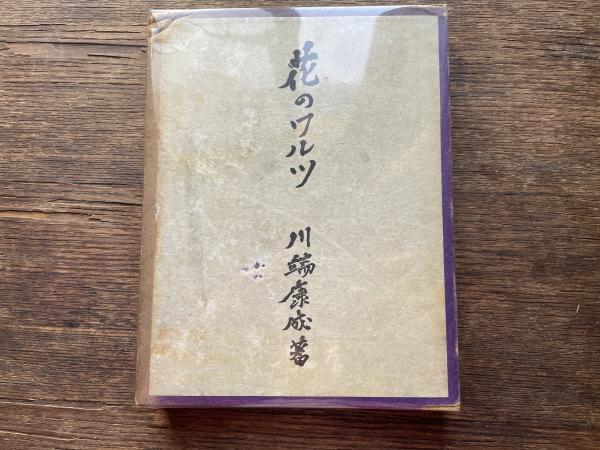 花のワルツ
川端康成著